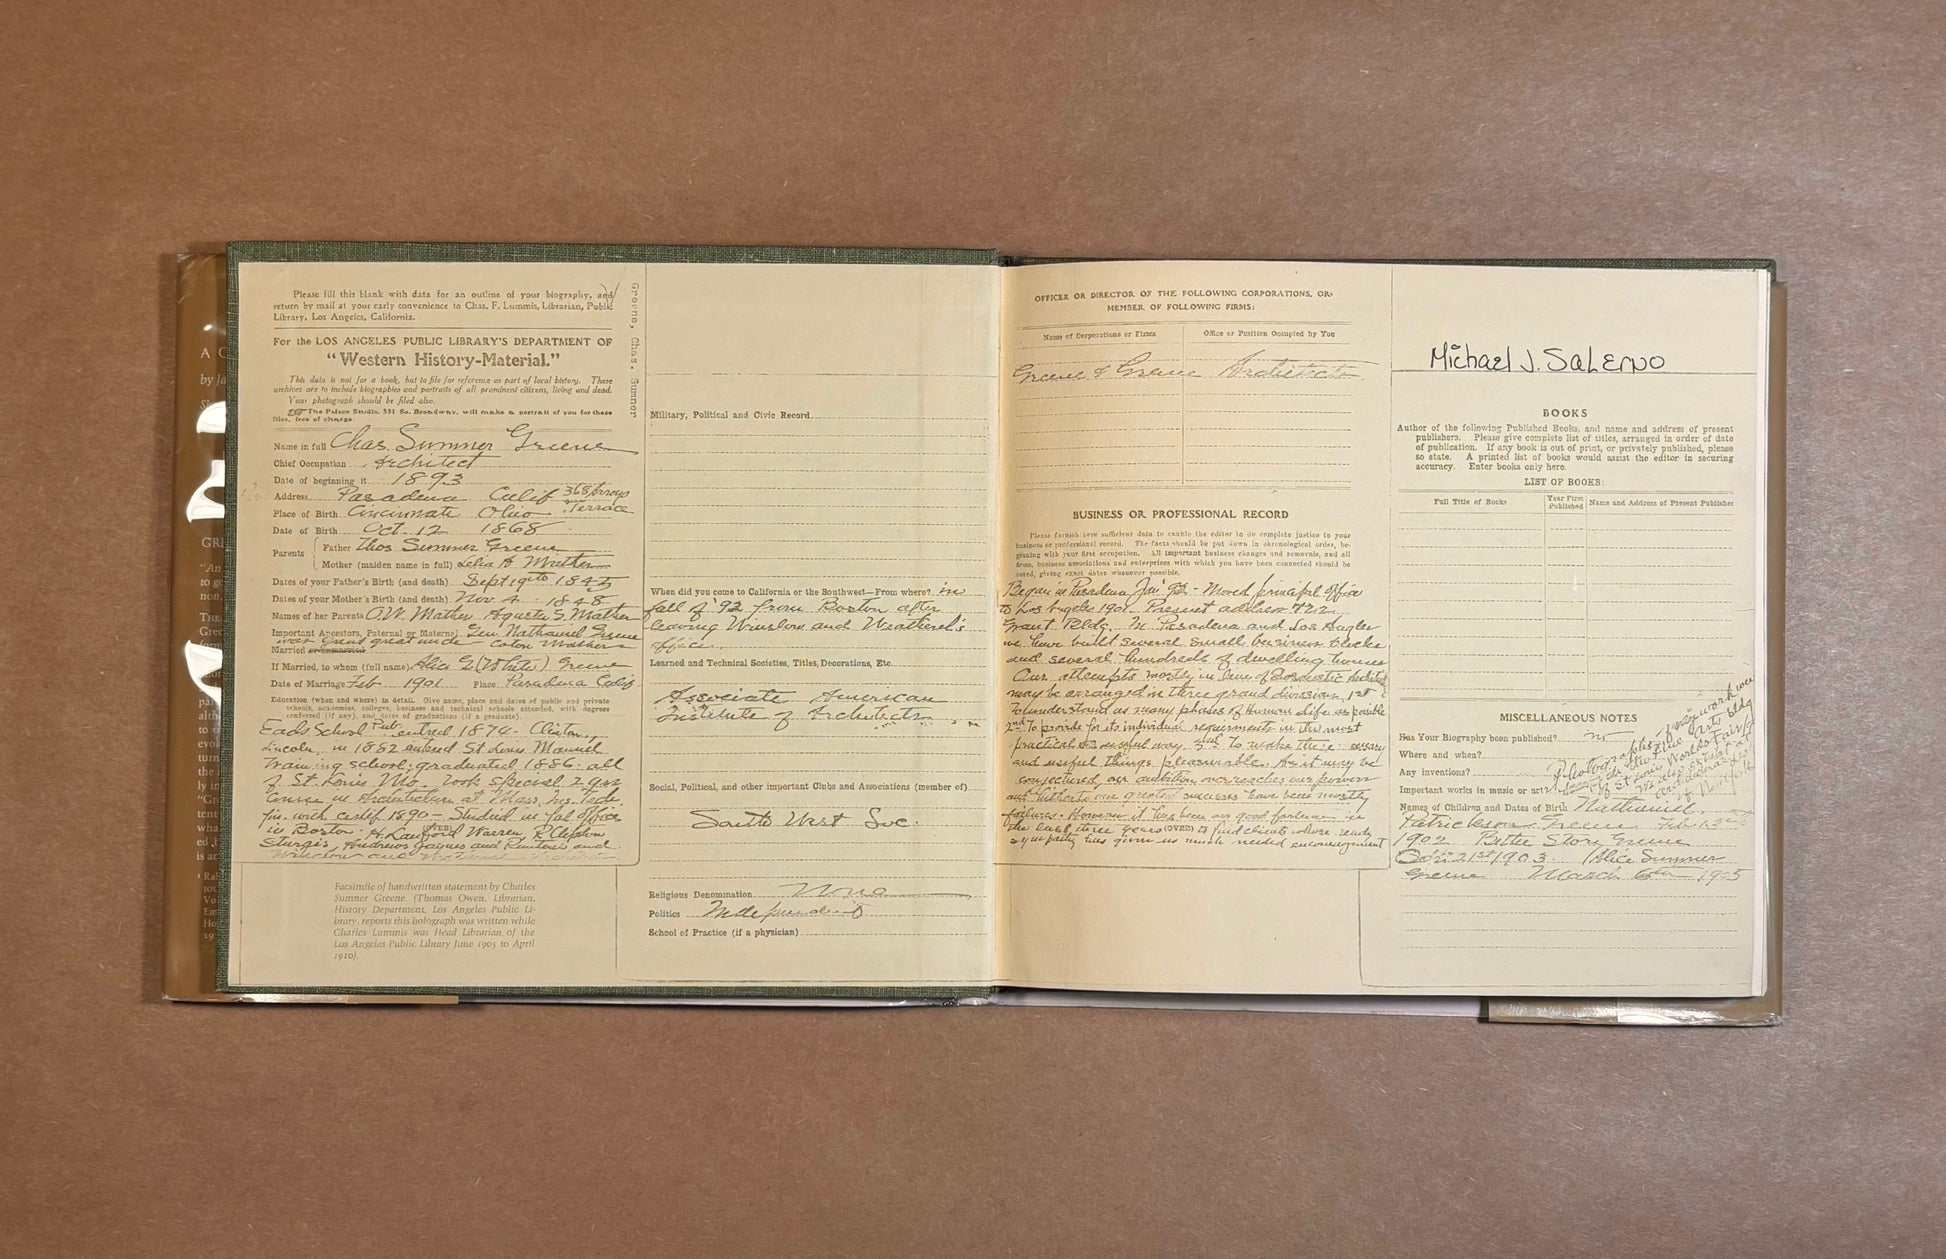 Please fill this blank with data for an outline of your biography, and
return by mail at your early convenience to Chas. F. Lummis, Librarian, Public
Library, Los Angeles, California.
For the LOS ANGELES PUBLIC LIBRARY'S DEPARTMENT OF
"Western History-Material."
This data is not for a book, but to file for reference as part of local history. These
archives are to include biographies and portraits of all prominent citizens, living and dead.
Your photograph should be filed also.
The Palace Studio, 351 So. Broadway, will make a portrait of you for these
files, free of charge.
Greene, Chas. Sumner
Name in full Chas Sumner Greene
Chief Occupation Architect
Date of beginning it 1893
Address Pasadena Calif 368 Arroyo Terrace
Place of Birth Cincinnati Ohio
Date of Birth Oct. 12 1868
Parents
Father Thos Sumner Greene
Mother (maiden name in full) Lelia A Mather
Dates of your Father's Birth (and death) Sept 19th 1845
Dates of your Mother's Birth (and death) Nov 4 1848
Names of her Parents O.W. Mather Agusta S. Mather
Important Ancestors, Paternal or Maternal Gen. Nathaniel Greene
was great great uncle Coton Mather
Married or unmarried
If Married, to whom (full name) Alice G (White) Greene
Date of Marriage Feb 1901 Place Pasadena Calif
Education (when and where) in detail. Give name, place and dates of public and private
schools, academies, colleges, business and technical schools attended, with degrees
conferred (if any), and dates of graduations (if a graduate).
Eads School Pub. entred 1874 - Clinton,
Lincoln, in 1882 entered St Louis Manuel
training school: graduated 1886: all
of St. Louis Mo. Took special 2 year
course in Architecture at Mass. Ins. Tech.
fin. with certif 1890 - Studied in fol office
in Boston - H. Langford Warren, R Clipston
(OVER)
Sturgis, Andrews Jaques and Rantoul and
Winslow and
Facsimile of handwritten statement by Charles
Sumner Greene. (Thomas Owen, Librarian,
History Department, Los Angeles Public Li-
brary, reports this holograph was written while
Charles Lummis was Head Librarian of the
Los Angeles Public Library June 1905 to April
1910).
Military, Political and Civic Record
When did you come to California or the Southwest—From where? in
fall of '93 from Boston after
leaving Winslow and Weatherel's
office.
Learned and Technical Societies, Titles, Decorations, Etc.
Associate American
Institute of Architects
Social, Political, and other important Clubs and Associations (member of)
South West Soc.
Religious Denomination None
Politics Independent
School of Practice (if a physician)
OFFICER OR DIRECTOR OF THE FOLLOWING CORPORATIONS, OR
MEMBER OF FOLLOWING FIRMS:
Name of Corporations or Firms
Office or Position Occupied by You
Greene & Greene Architects
BUSINESS OR PROFESSIONAL RECORD
Please furnish here sufficient data to enable the editor to do complete justice to your
business or professional record. The facts should be put down in chronological order, be-
ginning with your first occupation. All important business changes and removals, and all
firms, business associations and enterprises with which you have been connected should be
noted, giving exact dates whenever possible.
Began in Pasadena Jan' - Moved principal office
to Los Angeles 1901. Present address 722
Grant Bldg. In Pasadena and Los Angles
we have built several small business blocks
and several hundreds of dwelling houses
Our attempts mostly in line of Domestic Architect
may be arranged in three grand division, 1st
To understand as many phases of human life as possible
2nd To provide for its individual requirements in the most
practical & useful way. 3rd To make these necessary
and useful things pleasurable. As it may be
conjectured, our ambition overreaches our powers
and hitherto our greatest successes have been mostly
failures. However it has been our good fortune in
the last three years (OVER) to find clients whose ready
sympathy has given us much needed encouragement
Michael J. Salerno
BOOKS
Author of the following Published Books, and name and address of present
publishers. Please give complete list of titles, arranged in order of date
of publication. If any book is out of print, or privately published, please
so state. A printed list of books would assist the editor in securing
accuracy. Enter books only here.
LIST OF BOOKS:
Full Title of Books
Year First Published
Name and Address of Present Publisher
MISCELLANEOUS NOTES
Has Your Biography been published? no
Where and when?
Any inventions?
Important works in music or art?
Photographs of my work were
in the Fine Arts bldg
of St Louis Worlds Fair
Names of Children and Dates of Birth Nathaniel
Patrickson Greene Feb
1902 Bettie Story Greene
21st 1903. Alice Sumner
Greene March 1905